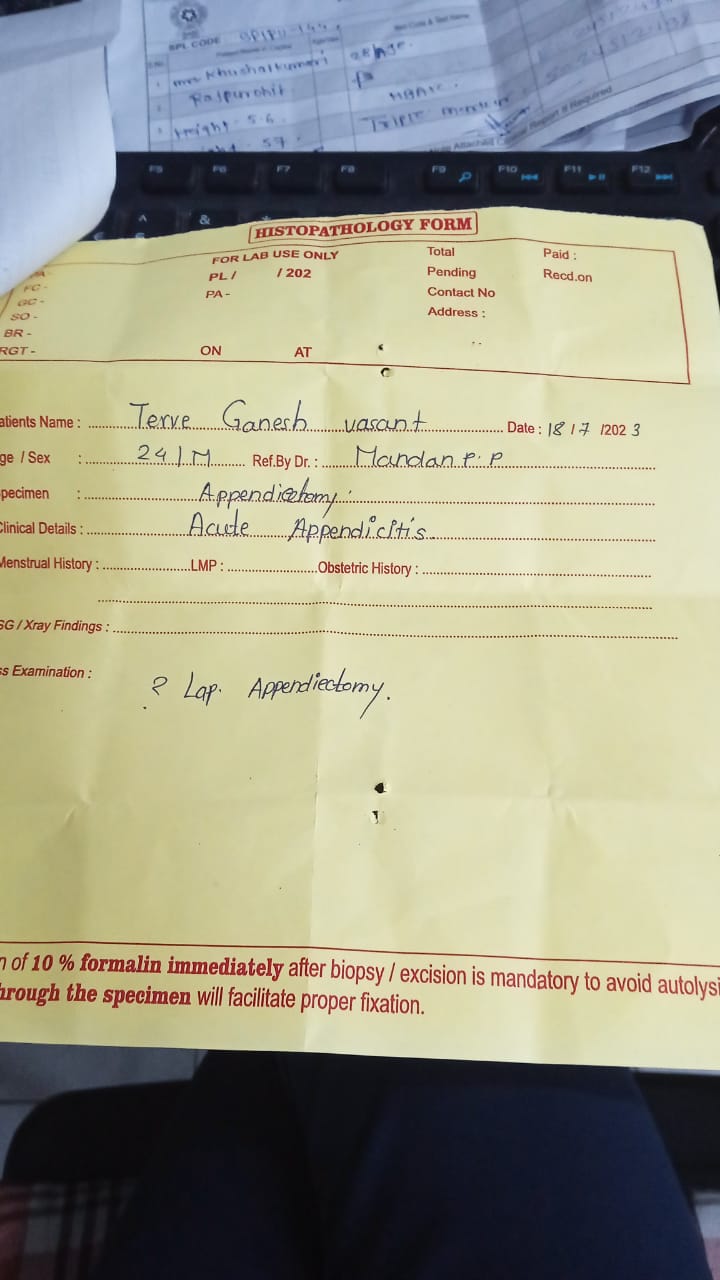 SPL CODE
mrs Khushalkumari
Rajpurohit
Height - 5.6
57
F5 F6 F7 F8 F9 F10 F11 F12
&
HISTOPATHOLOGY FORM
FOR LAB USE ONLY
PL / / 202
PA -
ON AT
Total Paid :
Pending Recd.on
Contact No
Address :
PA -
FC -
GC -
SO -
BR -
RGT -
atients Name : Terve Ganesh vasant Date : 18 / 7 /202 3
ge / Sex : 24 / M Ref.By Dr. : Mandan P. P
pecimen : Appendiectomy
Clinical Details : Acute Appendicitis.
Menstrual History : LMP : Obstetric History :
SG / Xray Findings :
ss Examination :
? Lap. Appendiectomy.
n of 10 % formalin immediately after biopsy / excision is mandatory to avoid autolysi
hrough the specimen will facilitate proper fixation.